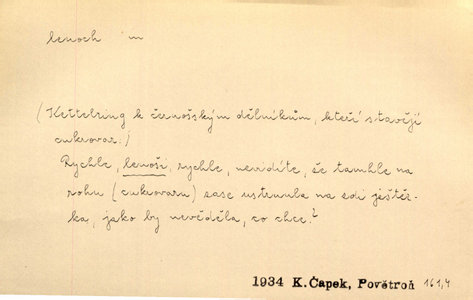 lenoch m
(Kettelring k černošským dělníkům, kteří stavějí
cukrovar:)
Rychle, lenoši, rychle, nevidíte, že tamhle na
rohu (cukrovaru) zase ustrnula na zdi ještěr-
ka, jako by nevěděla, co chce?
1934 K.Čapek, Povětroň 161,4